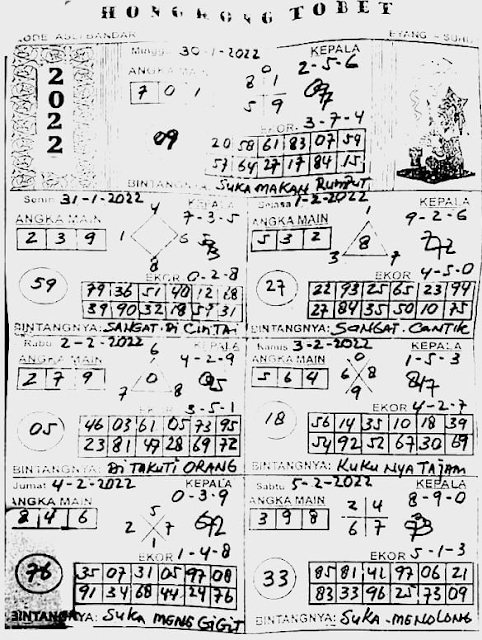 HONGKONG TOBET
KODE ASLI BANDAR
EYANG - SUHU
2022
Minggu 30-1-2022
KEPALA
2-5-6
ANGKA MAIN
7 0 1
0
8 1
5 9
09
EKOR 3-7-4
20 58 61 83 07 59
57 64 27 17 84 15
BINTANGNYA: SUKA MAKAN RUMPUT
Senin 31-1-2022
KEPALA
7-3-5
ANGKA MAIN
2 3 9
4
1 6
8
59
EKOR 0-2-8
79 36 51 40 12 28
39 90 32 18 59 31
BINTANGNYA: SANGAT DI CINTAI
Selasa 1-2-2022
KEPALA
9-2-6
ANGKA MAIN
5 3 2
1
8
3 7
27
EKOR 4-5-0
22 93 25 65 23 94
27 84 35 50 10 75
BINTANGNYA: SANGAT CANTIK
Rabu 2-2-2022
KEPALA
4-2-9
ANGKA MAIN
2 7 9
6
0
7 8
05
EKOR 3-5-1
46 03 61 05 73 95
23 81 47 28 69 72
BINTANGNYA: DI TAKUTI ORANG
Kamis 3-2-2022
KEPALA
1-5-3
ANGKA MAIN
5 6 4
0
6 8
9
847
18
EKOR 4-2-7
56 14 35 10 18 39
54 92 52 67 30 69
BINTANGNYA: KUKU NYA TAJAM
Jumat 4-2-2022
KEPALA
0-3-9
ANGKA MAIN
8 4 6
5
2 7
1
76
EKOR 1-4-8
35 07 31 05 97 08
91 34 68 44 24 76
BINTANGNYA: SUKA MENGGIGIT
Sabtu 5-2-2022
KEPALA
8-9-0
ANGKA MAIN
3 9 8
2 4
6 7
33
EKOR 5-1-3
85 81 42 97 06 21
83 33 96 25 73 09
BINTANGNYA: SUKA MENOLONG